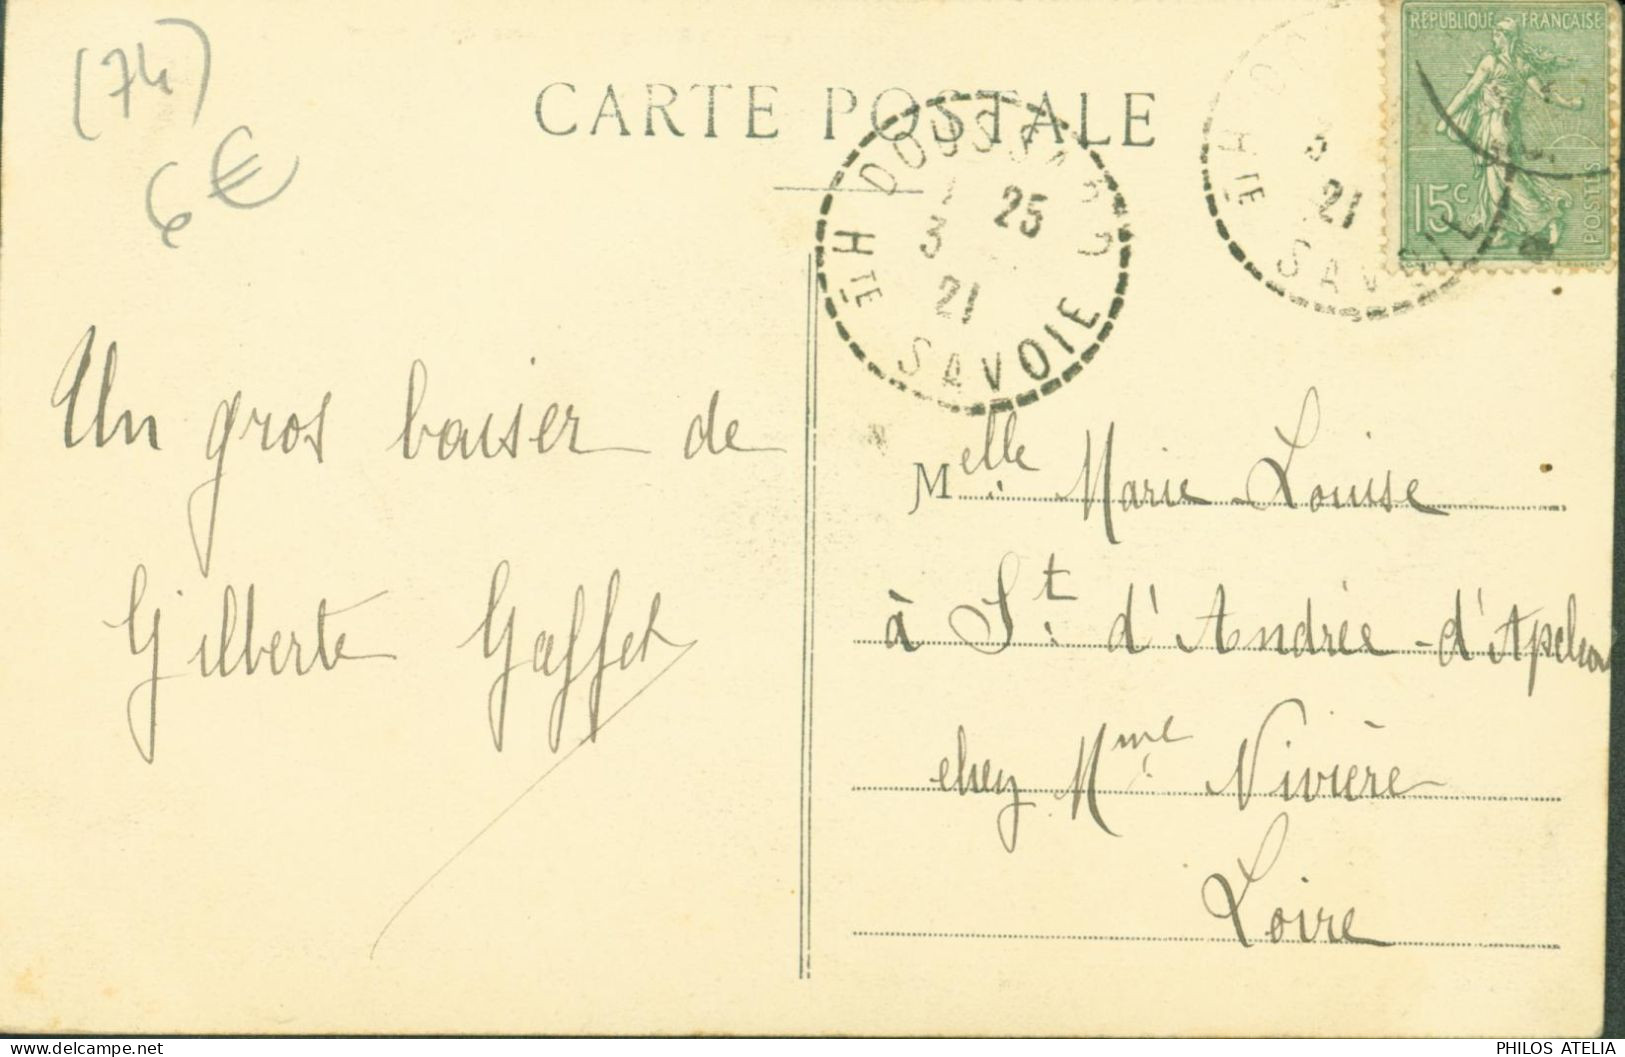 (74)
6€
CARTE POSTALE
REPUBLIQUE FRANÇAISE
15c
POSTES
DOUSSARD
Hte
25
3
21
SAVOIE
Hte
3
21
SAVOIE
Un gros baiser de
Gilberte Gaffet
Melle Marie Louise
à St. d'Andrée-d'Apchon
chez Mme Nivière
Loire
PHILOS ATELIA